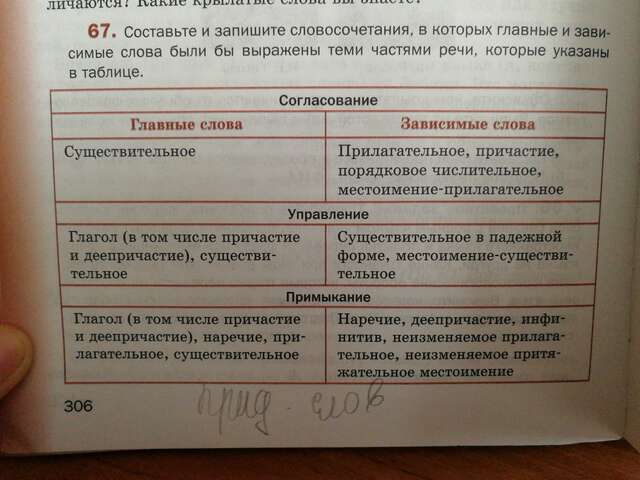 личаются? Какие крылатые слова вы знаете?
67. Составьте и запишите словосочетания, в которых главные и зави-
симые слова были бы выражены теми частями речи, которые указаны
в таблице.
Согласование
Главные слова
Зависимые слова
Существительное
Прилагательное, причастие,
порядковое числительное,
местоимение-прилагательное
Управление
Глагол (в том числе причастие
и деепричастие), существи-
тельное
Существительное в падежной
форме, местоимение-существи-
тельное
Примыкание
Глагол (в том числе причастие
и деепричастие), наречие, при-
лагательное, существительное
Наречие, деепричастие, инфи-
нитив, неизменяемое прилага-
тельное, неизменяемое притя-
жательное местоимение
306
прид. слов